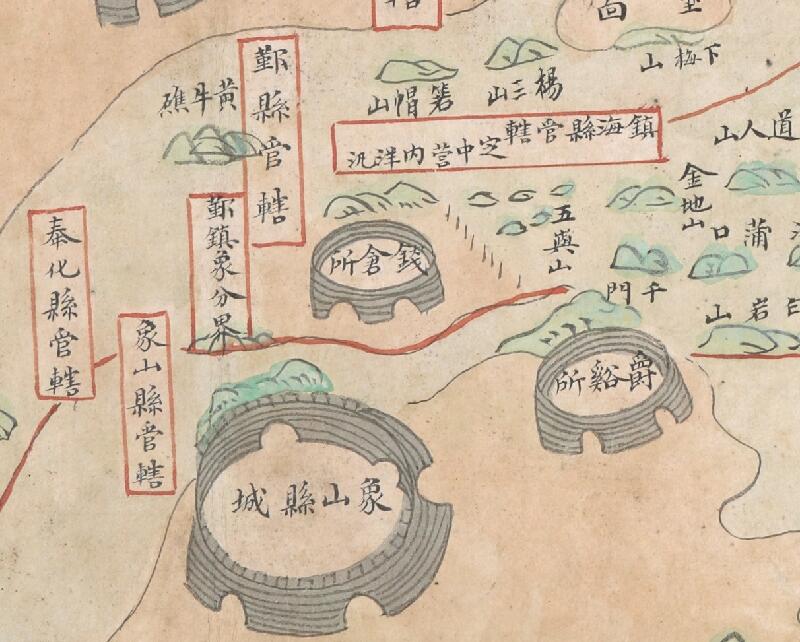 轄
黃牛礁
鄞縣管轄
箬帽山
楊三山
下梅山
鎮海縣管轄
定中營內洋汛
道人山
金地山
蒲
口
五與山
鄞鎮象分界
奉化縣管轄
象山縣管轄
錢倉所
千門
岩山
爵谿所
象山縣城